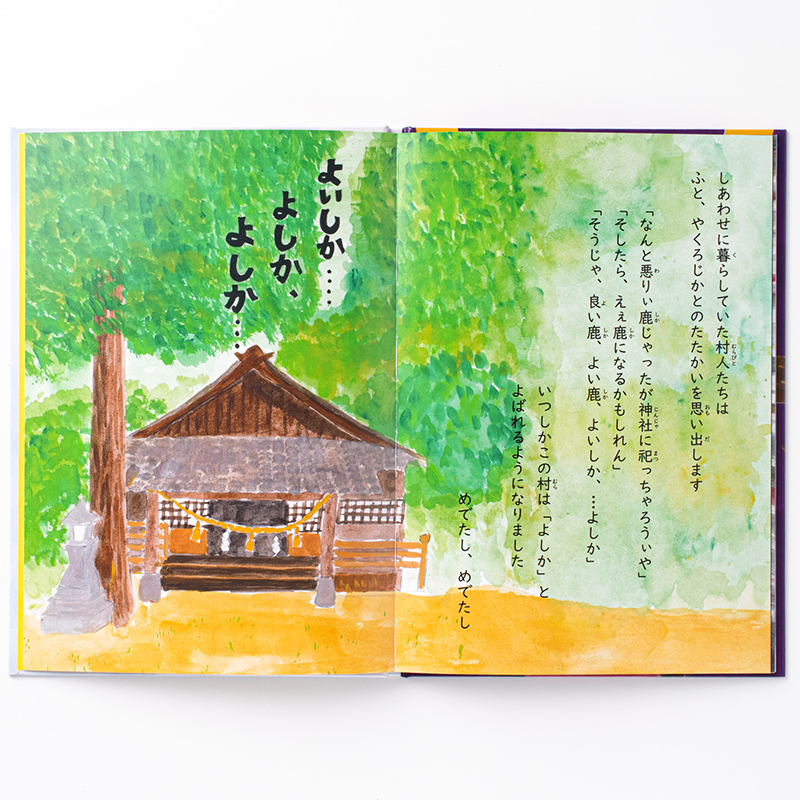 しあわせに暮らしていた村人たちは
ふと、やくろじかとのたたかいを思い出します
「なんと悪りぃ鹿じゃったが神社に祀っちゃろうぃや」
「そしたら、えぇ鹿になるかもしれん」
「そうじゃ、良い鹿、よい鹿、よいしか、…よしか」
いつしかこの村は「よしか」と
よばれるようになりました
めでたし、めでたし
よいしか‥‥
よしか、
よしか‥‥